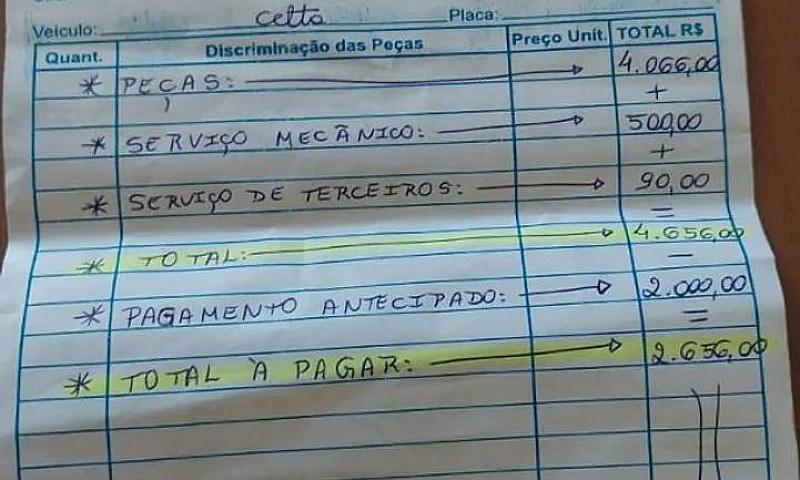 Veiculo: Celta Placa:
Quant. Discriminação das Peças Preço Unit. TOTAL R$
* PEÇAS: 4.066,00
+
* SERVIÇO MECÃNICO: 500,00
+
* SERVIÇO DE TERCEIROS: 90,00
=
* TOTAL: 4.656,00
-
* PAGAMENTO ANTECIPADO: 2.000,00
=
* TOTAL À PAGAR: 2.656,00